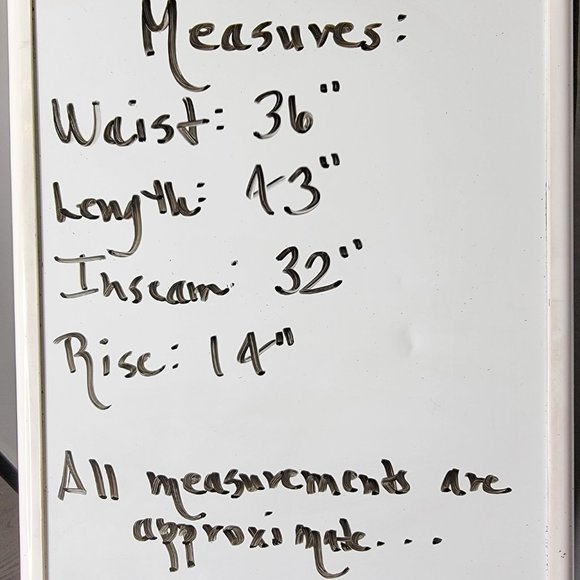 Measures:
Waist: 36"
Length: 43"
Inseam: 32"
Rise: 14"
All measurements are
approximate...